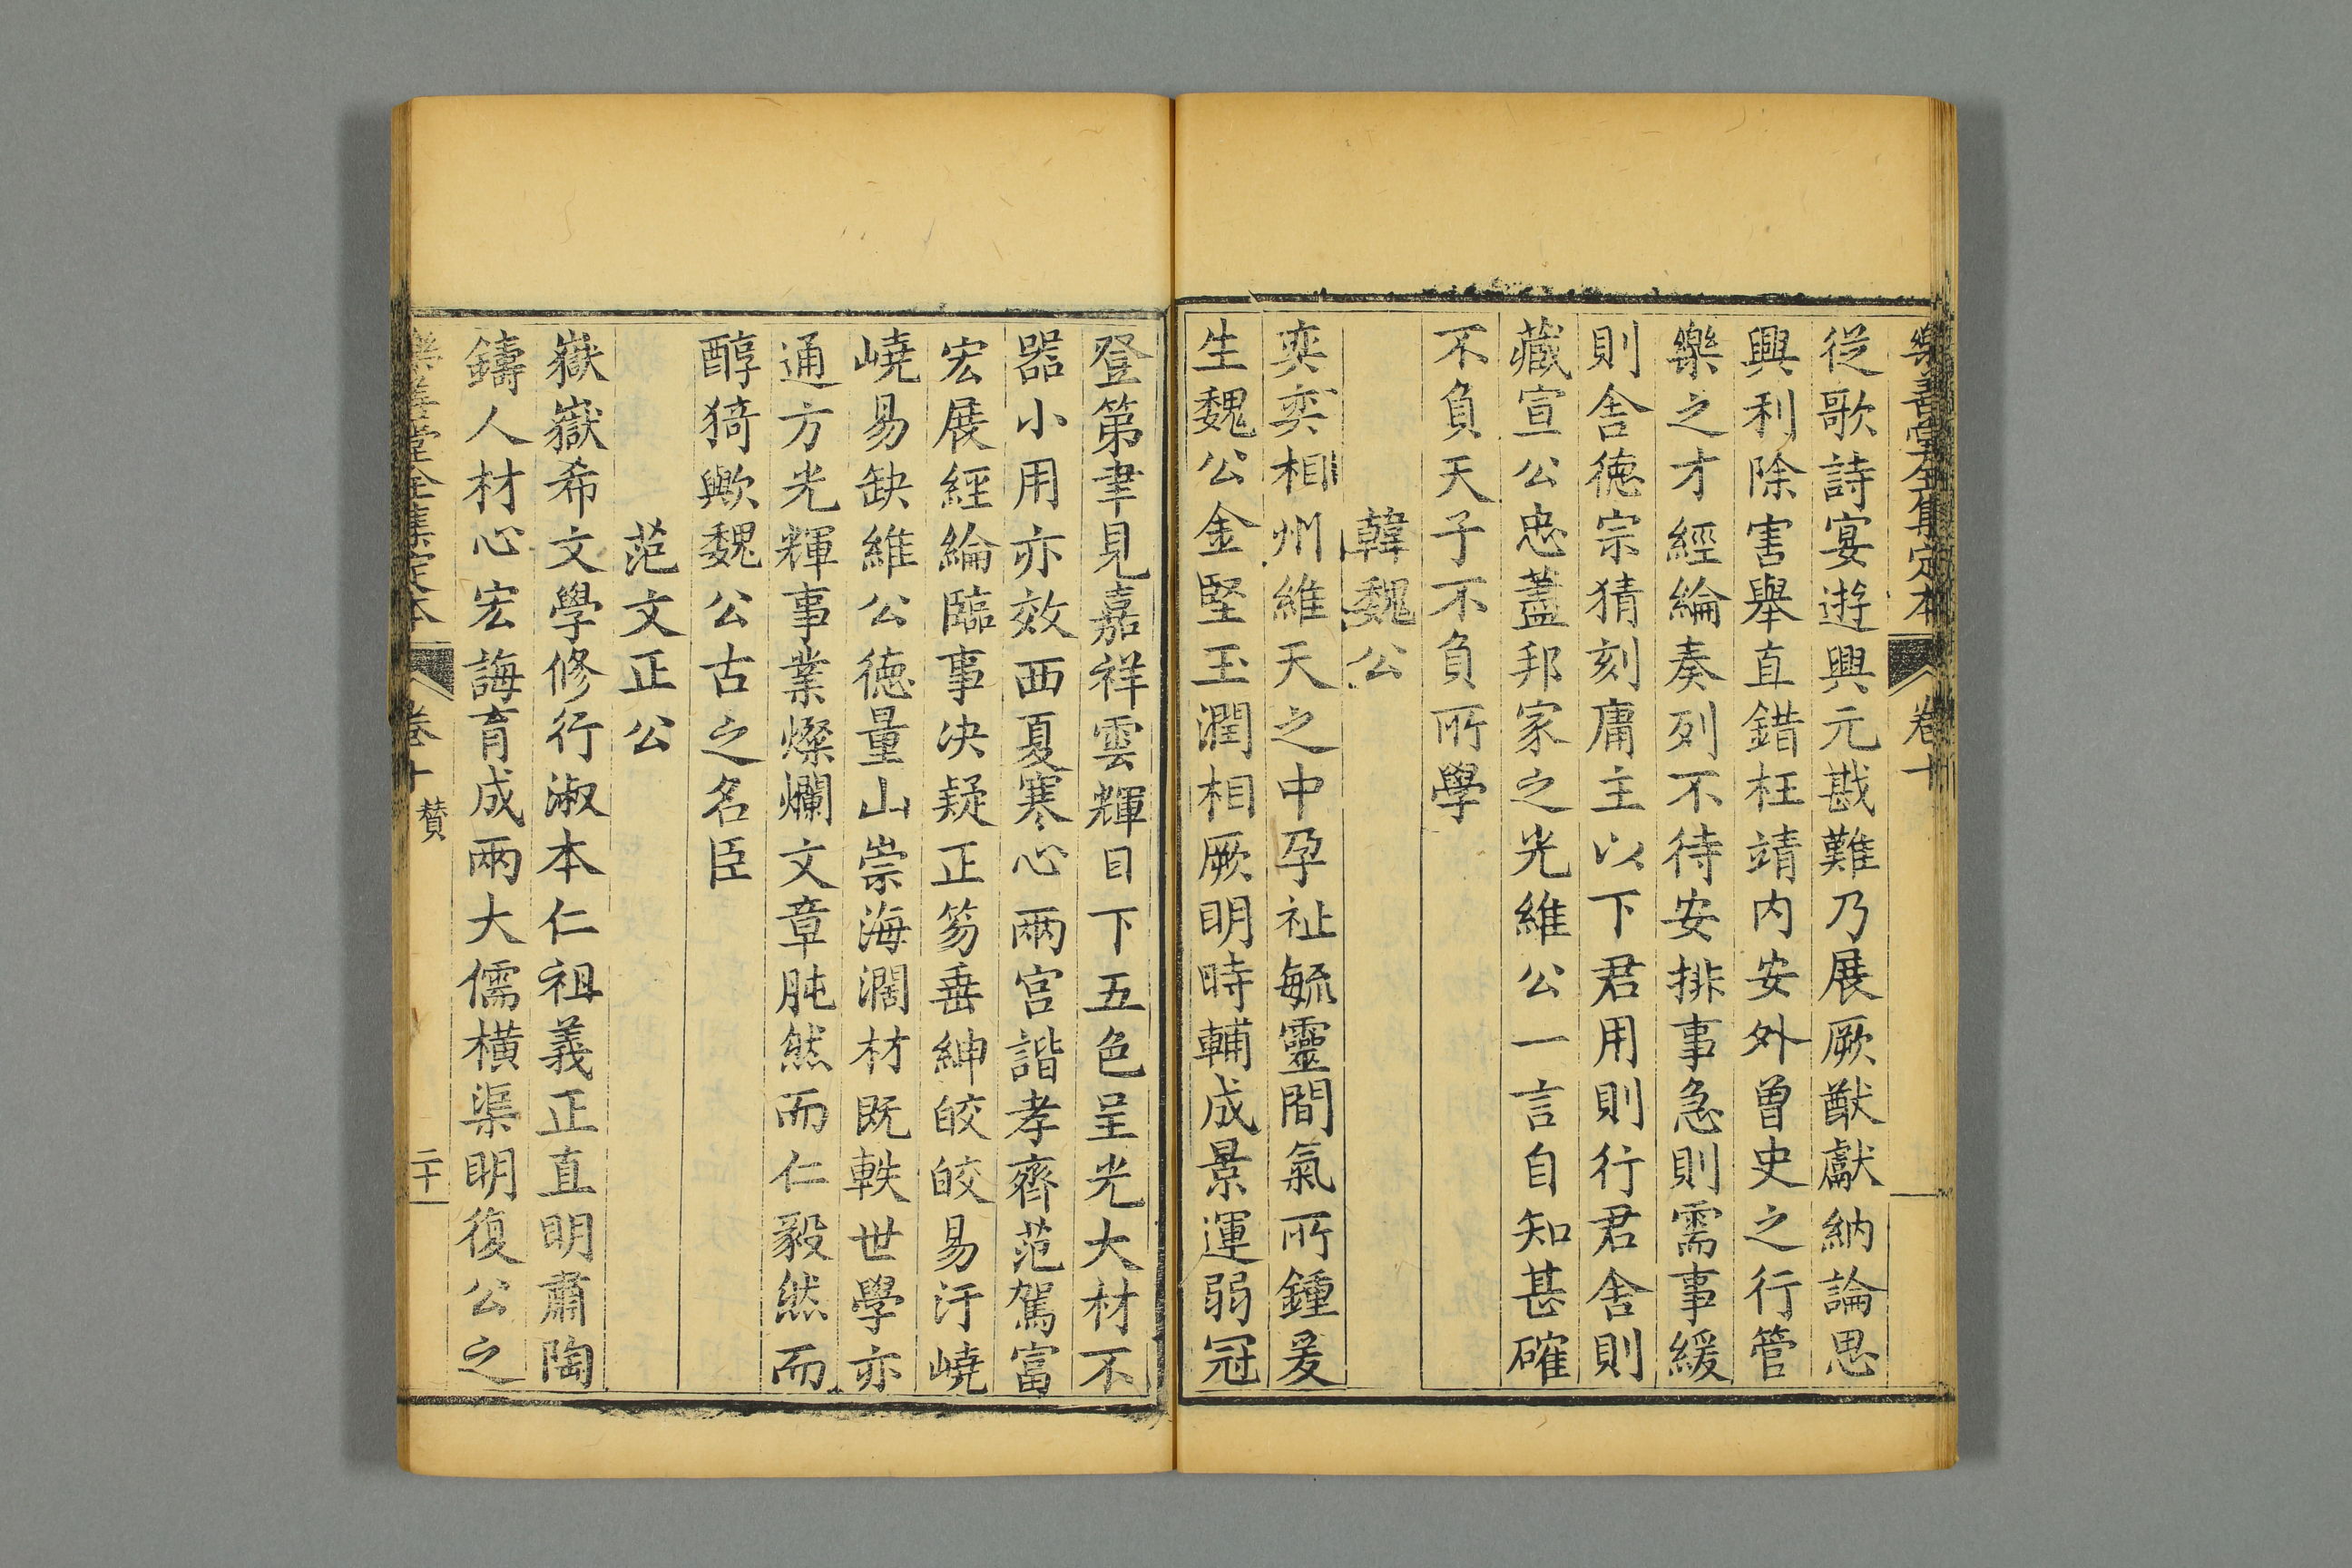 樂善堂全集定本 卷十
從歌詩宴遊興元戡難乃展厥猷獻納論思
興利除害舉直錯枉靖内安外曾史之行管
樂之才經綸奏列不待安排事急則需事緩
則舍德宗猜刻庸主以下君用則行君舍則
藏宣公忠藎邦家之光維公一言自知甚確
不負天子不負所學
韓魏公
奕奕相州維天之中孕祉毓靈間氣所鍾爰
生魏公金堅玉潤相厥明時輔成景運弱冠
登第聿見嘉祥雲輝日下五色呈光大材不
器小用亦效西夏寒心兩宮諧孝齊范駕富
宏展經綸臨事决疑正笏垂紳皎皎易汙嶢
嶢易缺維公德量山崇海濶材既軼世學亦
通方光輝事業燦爛文章肫然而仁毅然而
醇猗歟魏公古之名臣
范文正公
嶽嶽希文學修行淑本仁祖義正直明肅陶
鑄人材心宏誨育成兩大儒橫渠明復公之
樂善堂全集定本 卷十 贊 二十